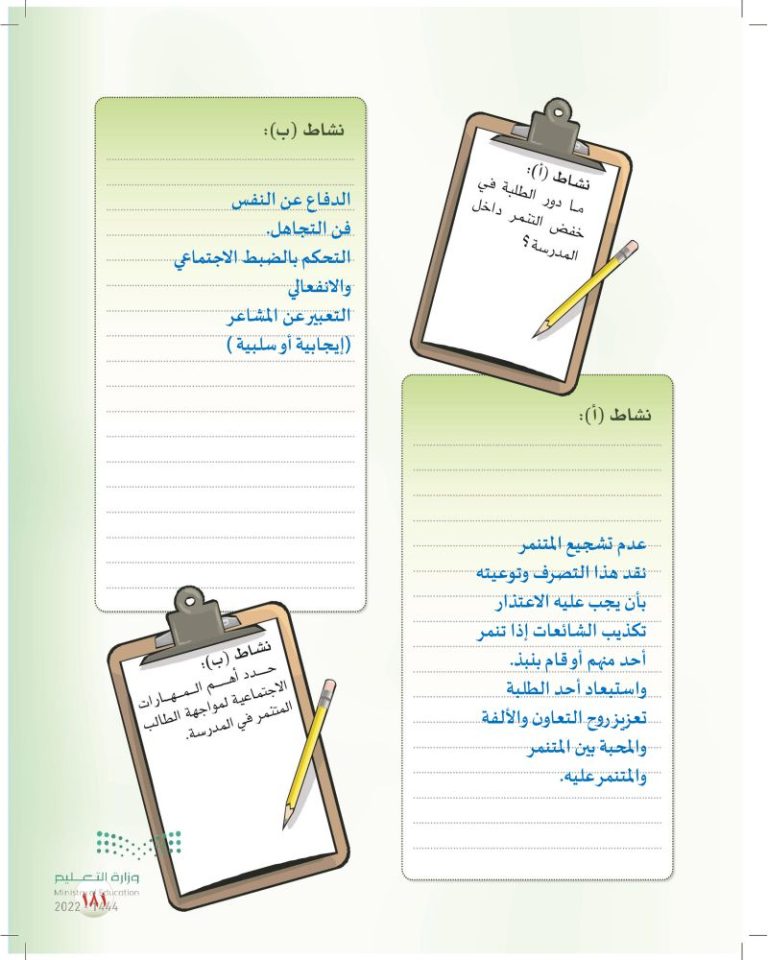 نشاط (أ):
ما دور الطلبة في
خفض التنمر داخل
المدرسة؟
نشاط (أ):
عدم تشجيع المتنمر
نقد هذا التصرف وتوعيته
بأن يجب عليه الاعتذار
تكذيب الشائعات إذا تنمر
أحد منهم أو قام بنبذ.
واستبعاد أحد الطلبة
تعزيز روح التعاون والألفة
والمحبة بين المتنمر
والمتنمر عليه.
نشاط (ب):
الدفاع عن النفس
فن التجاهل.
التحكم بالضبط الاجتماعي
والانفعالي
التعبير عن المشاعر
(إيجابية أو سلبية )
نشاط (ب):
حـدد أهـم الـمـهـارات
الاجتماعية لمواجهة الطالب
المتنمر في المدرسة.
وزارة التعـليم
Ministry of Education
١٨١
2022 - 1444